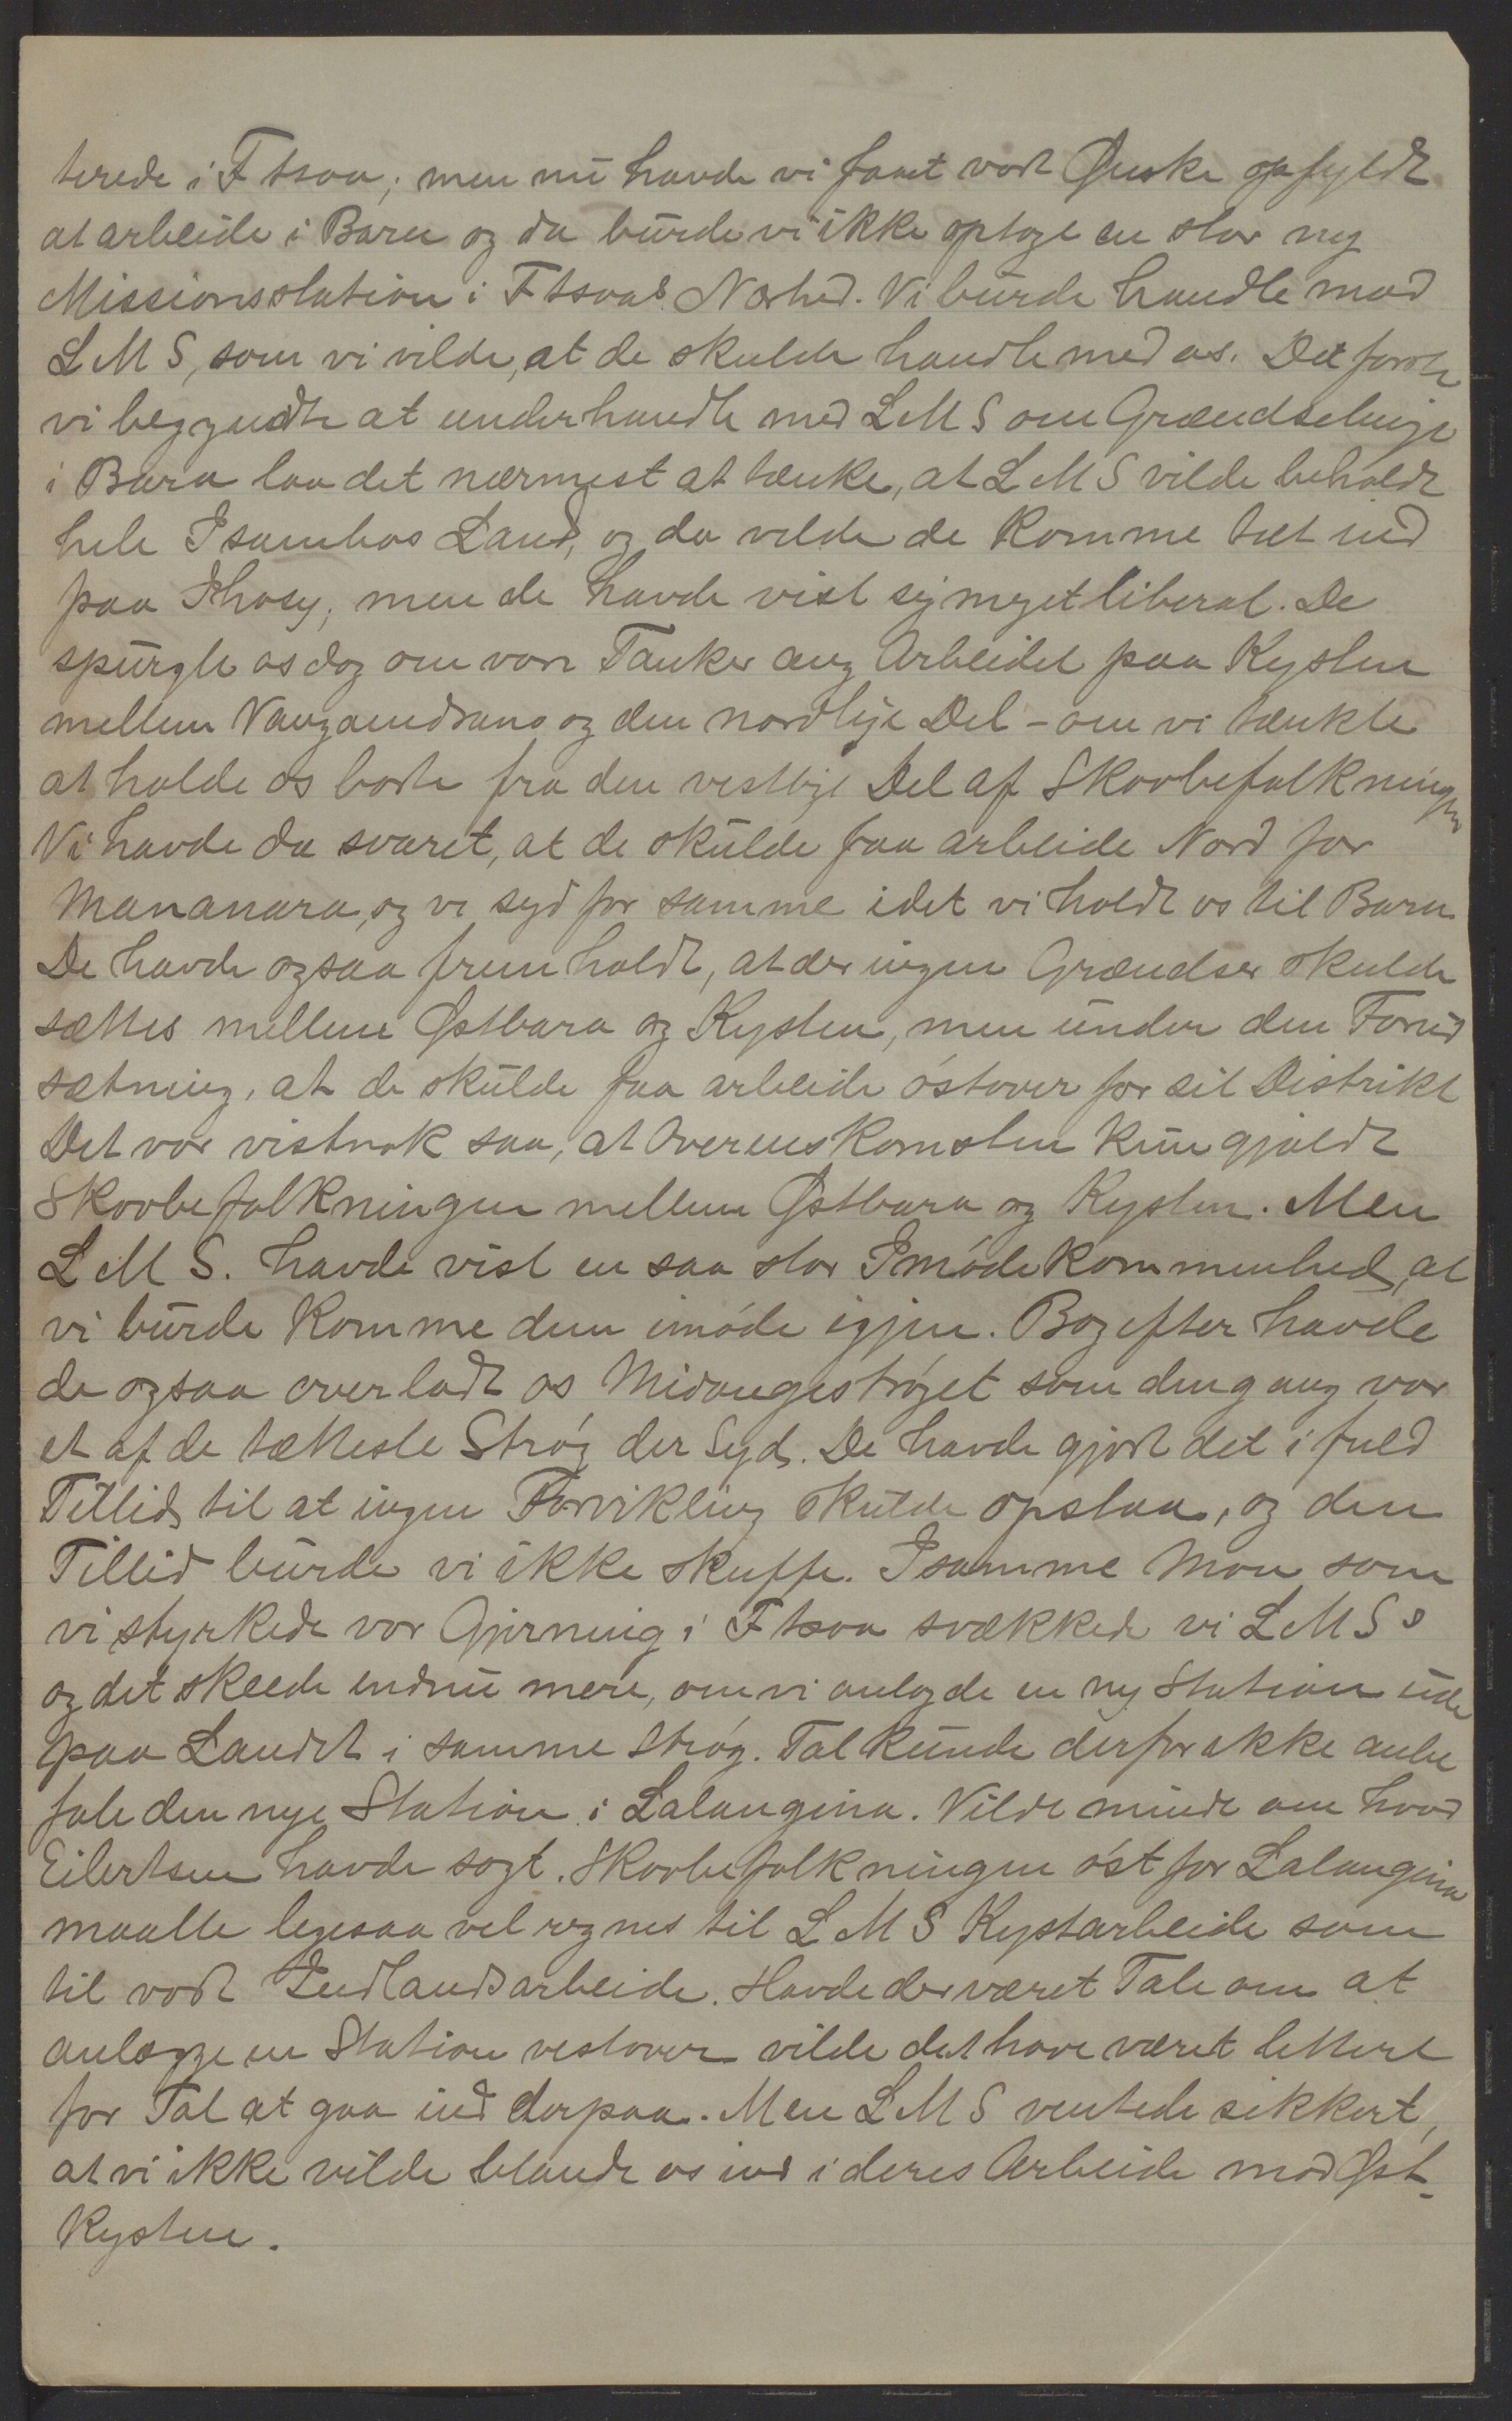 terede i Ftsoa; men nu havde vi faaet vort Ønske opfyldt
at arbeide i Bara og da burde vi ikke optage en stor ny
Missionsstation i Ftsoas Nærhed. Vi burde handle mod
LMS, som vi vilde, at de skulde handle med os. Det første
vi begyndte at underhandle med LMS om Grændselinje
i Bara laa det nærmest at tænke, at LMS vilde beholdt
hele Isambos Land, og da vilde de komme tæt ind
paa Ihosy, men de havde vist sig meget liberal. De
spurgte os dog om vore Tanker ang Arbeidet paa Kysten
mellem Vangaindrano og den nordlige Del - om vi tænkte
at holde os borte fra den vestlige Del af Skovbefolkningen
Vi havde da svaret, at de skulde faa arbeide Nord for
Mananara, og vi syd for samme idet vi holdt os til Bara.
De havde ogsaa fremholdt, at der ingen Grændser skulde
sættes mellem Østbara og Kysten, men under den Forud
sætning, at de skulde faa arbeide østover for sit Distrikt
Det var vistnok saa, at Overenskomsten kun gjaldt
Skovbefolkningen mellem Østbara og Kysten. Men
LMS. havde vist en saa stor Imødekommenhed, at
vi burde komme dem imøde igjen. Bagefter havde
de ogsaa overladt os Midongestrøget som dengang var
et af de tætteste Strøg der Syd. De havde gjort det i fuld
Tillid til at ingen Forvikling skulde opstaa, og den
Tillid burde vi ikke skuffe. I samme Mon som
vi styrkede vor Gjerning i Ftsoa svækkede vi LMSs
og det skeede endnu mere, om vi anlagde en ny Station ude
paa Landet i samme Strøg. Tal kunde derfor ikke anbe
fale den nye Station i Lalangina. Vilde minde om hvad
Eilertsen havde sagt. Skovbefolkningen øst for Lalangina
maatte ligesaa vel regnes til LMS Kystarbeide som
til vort Indlandsarbeide. Havde der været Tale om at
anlægge en Station vestover vilde det have været lettere
for Tal at gaa ind derpaa. Men LMS ventede sikkert,
at vi ikke vilde blande os ind i deres Arbeide mod Øst-
Kysten.